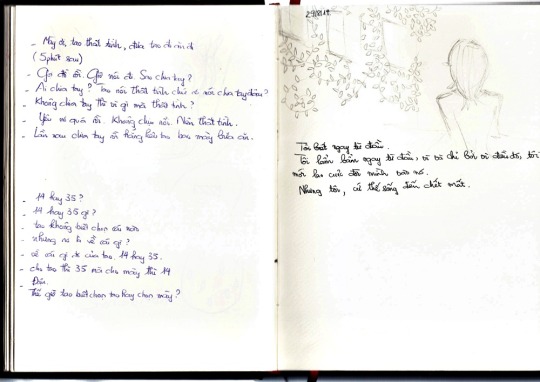 - Mày ơi, tao thất tình, đưa tao đi ăn đi
(5 phút sau)
- Giờ đỡ rồi. Giờ nói đi. Sao chia tay?
- Ai chia tay? Tao nói thất tình chứ có nói chia tay đâu?
- Không chia tay thì vì gì mà thất tình?
- Yêu quá rồi. Không chịu nổi. Nên thất tình.
- Lần sau chia tay rồi hẵng kêu tao bao mày bữa ăn.
- 14 hay 35?
- 14 hay 35 gì?
- tao không biết chọn cái nào
- nhưng nó là về cái gì?
- về cái gì kệ của tao. 14 hay 35.
- cho tao thì 35 mà cho mày thì 14
- Đấu.
Thế giờ tao biết chọn tao hay chọn mày?
29/8/19
Tôi bắt ngay từ đầu.
Tôi bẩn bẩn ngay từ đầu, vì và chỉ bởi vì điều đó, tôi
mới lao cuộc đời mình vào nó.
Nhưng tôi, có thể sống đến chết mất.